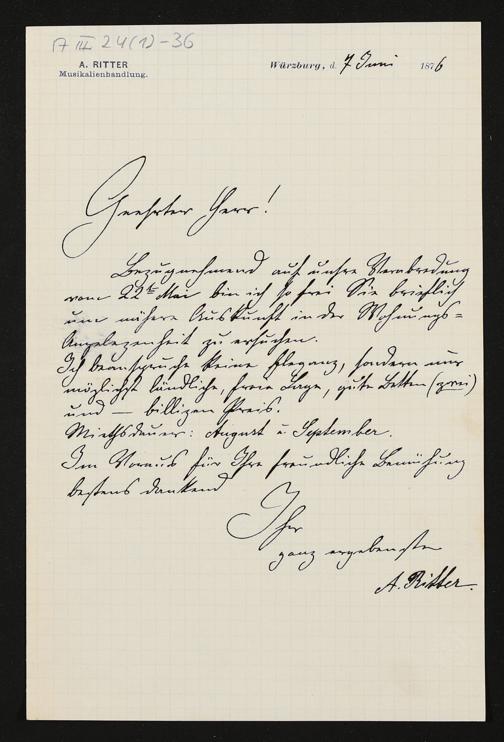 A III 24(1)-36
A. RITTER
Musikalienhandlung.
Würzburg, d. 7 Juni 1876
Geehrter Herr!
Bezugnehmend auf unsre Verabredung
vom 22ten Mai bin ich so frei Sie brieflich
um nähere Auskunft in der Wohnungs=
Angelegenheit zu ersuchen.
Ich beanspruche keine Eleganz, sondern nur
möglichst ländliche, freie Lage, gute Betten (zwei)
und — billigen Preis.
Miethsdauer: August u September.
Im Voraus für Ihre freundliche Bemühung
bestens dankend
Ihr
ganz ergebenster
A. Ritter.